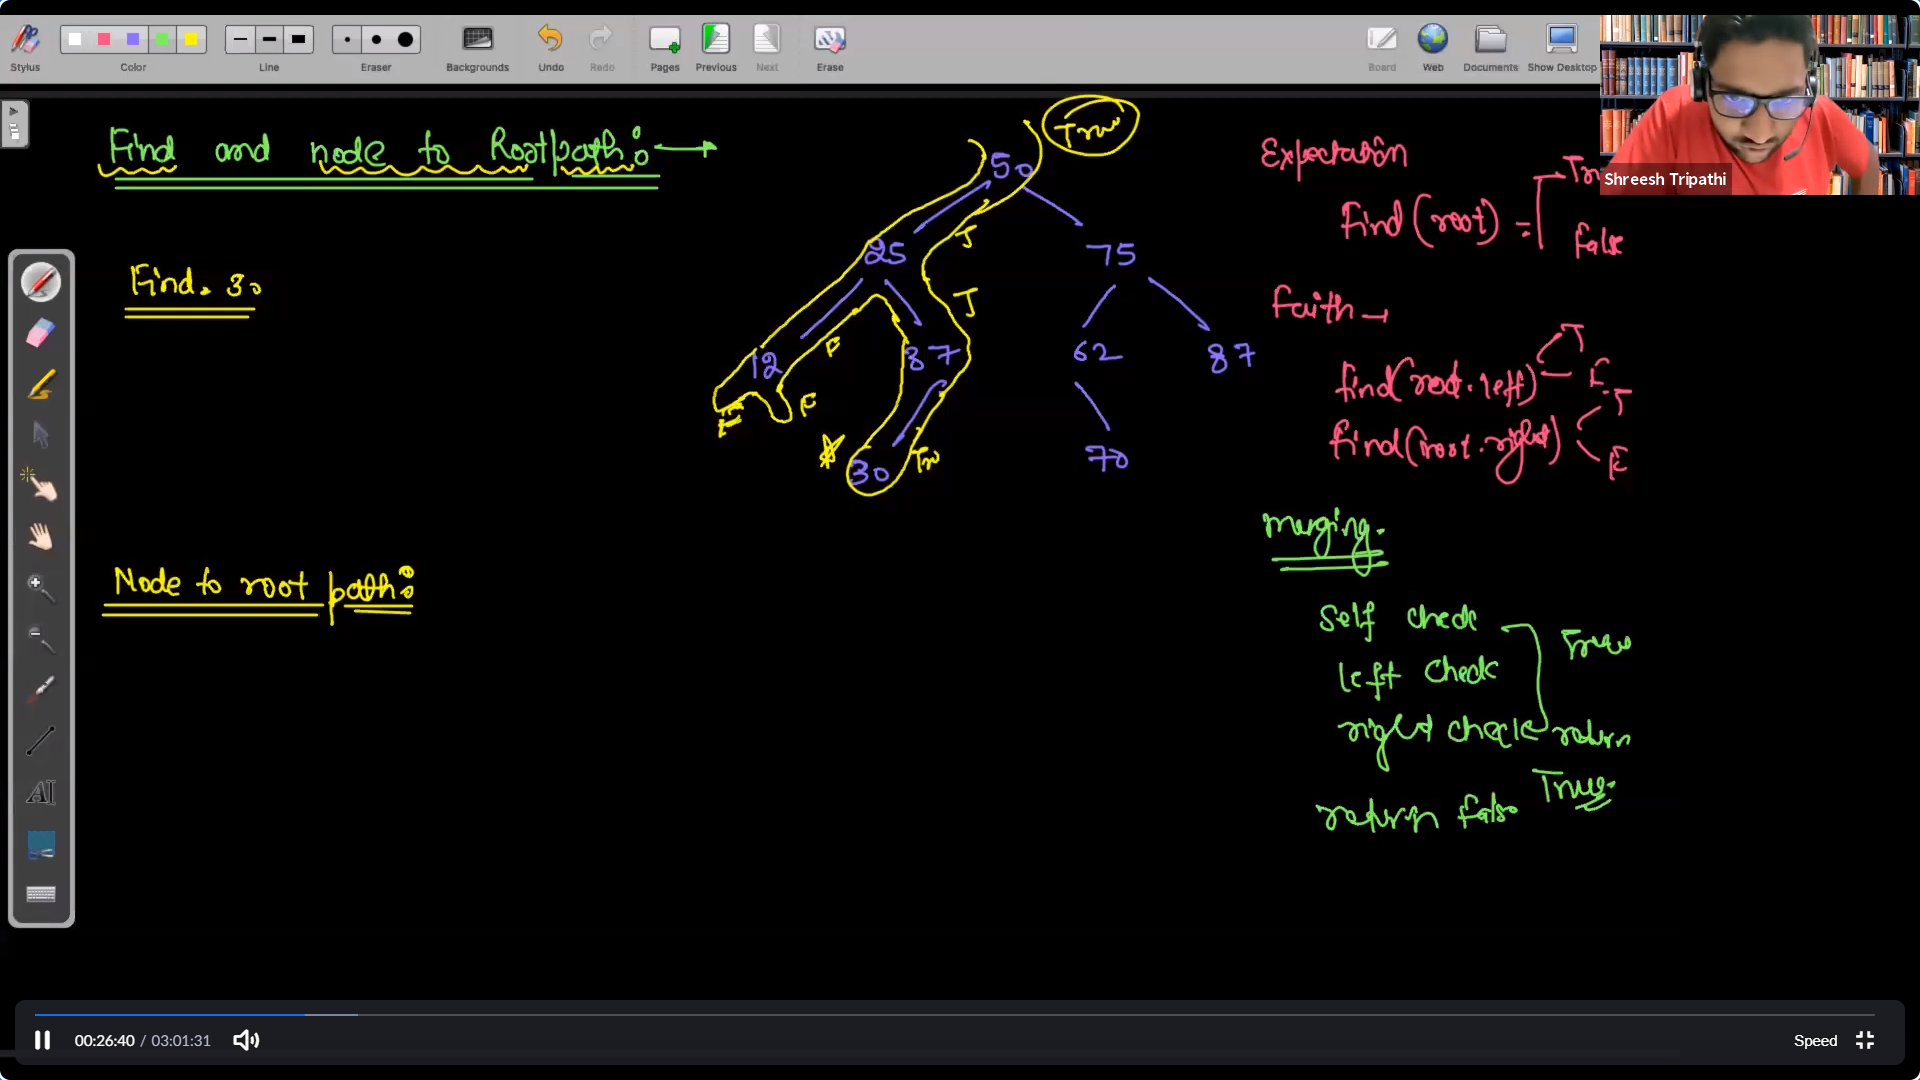 Stylus Color Line Eraser Backgrounds Undo Redo Pages Previous Next Erase Board Web Documents Show Desktop
Shreesh Tripathi
Find and node to Root path:
Find. 30
Node to root path:
True
50
25 75
12 37 62 87
30 70
J
J
F
F
F
Tru
Expectation
Find (root) =
false
Faith →
find(root.left)
T
F
find(root.right)
T
F
merging.
Self check
left check
right check
True
return
True.
return false
AI
00:26:40 / 03:01:31
Speed